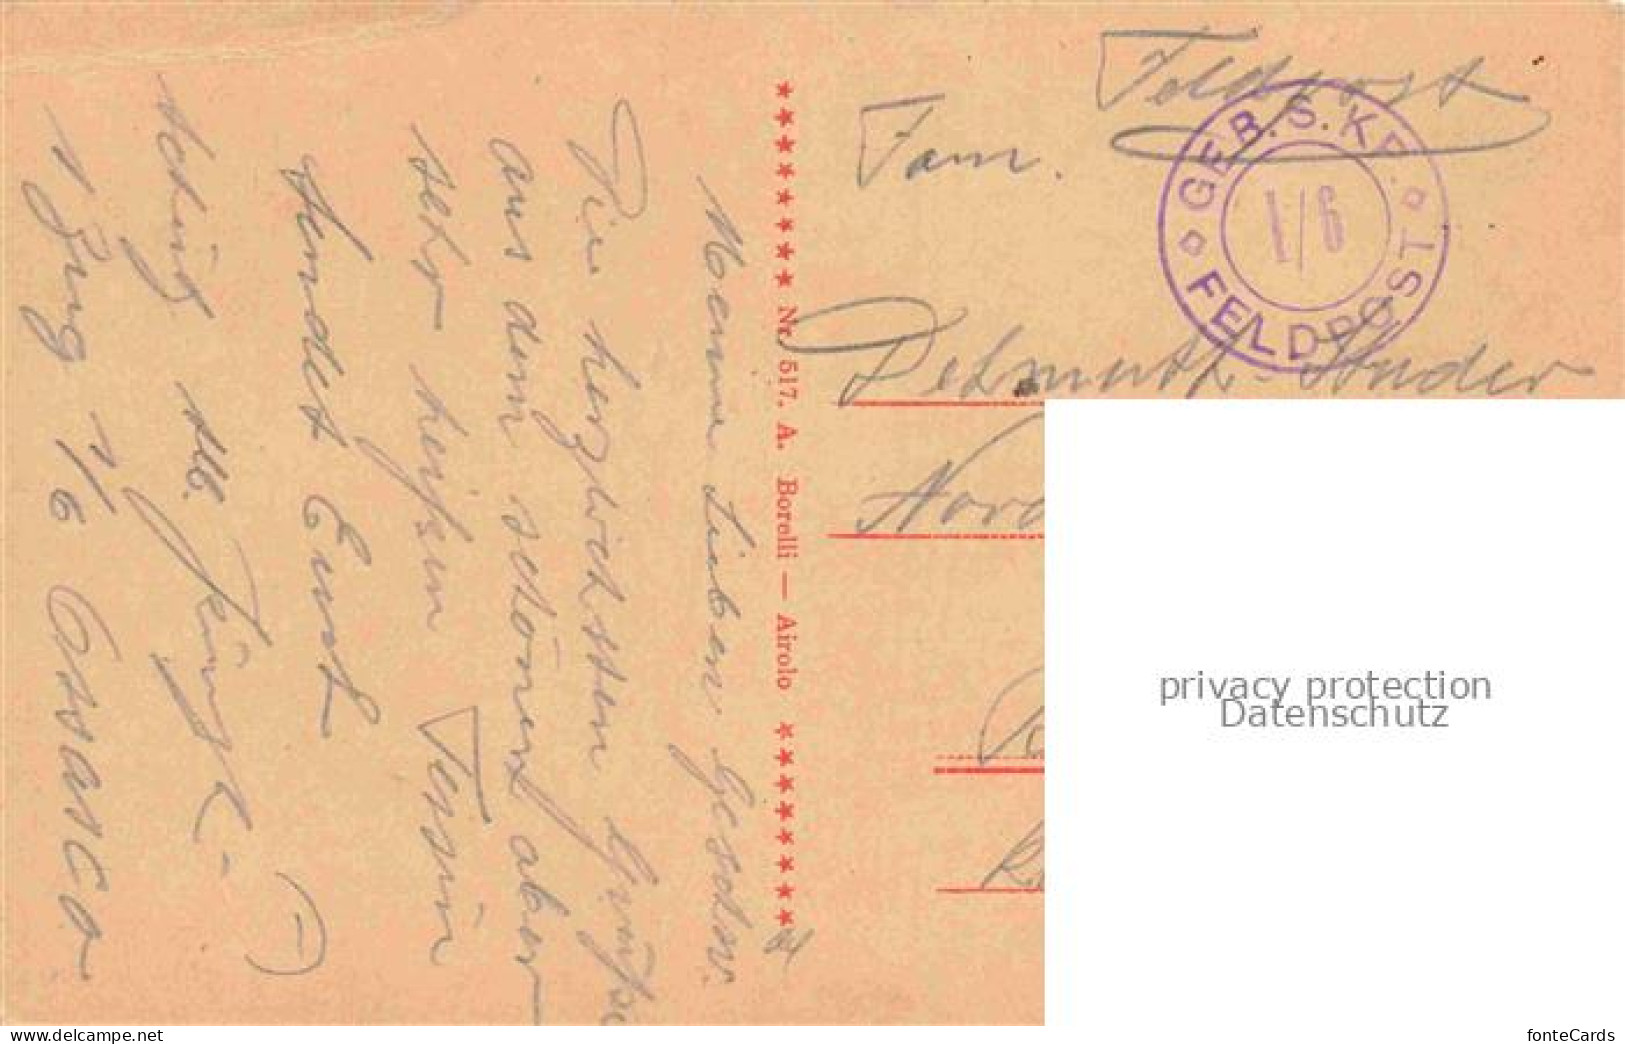 Meine Lieben Geschw.
Die herzlichsten Grüße
aus dem schönen aber
sehr heißen Tessin
sendet Ernst
✶✶✶✶✶✶✶✶ Nr. 517. A. Borelli — Airolo ✶✶✶✶✶✶✶✶
Feldpost
Fam.
GEB. S. KP.
I/6
FELDPOST
Dehmuth-Studer
Nord
1 Zug 1/6 Ossasco
privacy protection
Datenschutz
www.delcampe.net
fonteCards